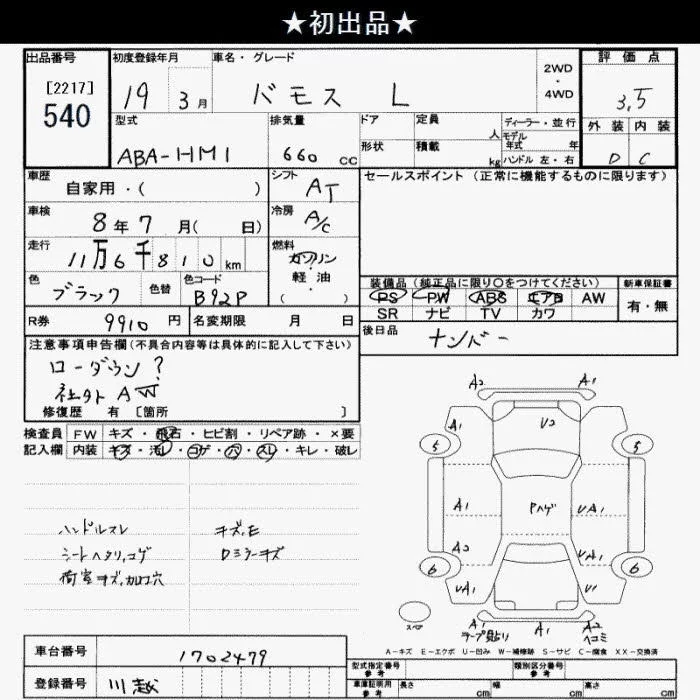 ★初出品★
出品番号
[2217]
540
初度登録年月
19 3月
車名・グレード
バモス L
2WD
・
4WD
評価点
3.5
外装 内装
D C
型式
ABA-HM1
排気量
660 CC
ドア
形状
定員
人
積載
kg
ディーラー・並行
モデル
年式 年
ハンドル 左・右
車歴
自家用・( )
シフト
AT
セールスポイント (正常に機能するものに限ります)
車検
8年7月( 日)
冷房
A/C
走行
11万6千810km
燃料
ガソリン
・
軽油
( )
色
ブラック
色替
色コード
B92P
装備品 (純正品に限り○をつけてください)
PS PW ABS エアB AW
SR ナビ TV カワ
新車保証書
有・無
R券
9910円
名変期限 月 日
後日品
ナンバー
注意事項申告欄(不具合内容等は具体的に記入して下さい)
ローダウン?
社外AW
修復歴 有 [箇所 ]
検査員
記入欄
FW キズ・飛石・ヒビ割・リペア跡・×要
内装 キズ・汚レ・コゲ・穴・スレ・キレ・破レ
ハンドルスレ キズ,E
シートヘタリ,コゲ Dミラーキズ
荷室キズ,加工穴
A2 A1
A1 U2
5 5
A1 Pハゲ UA1
A2 UA1
6 6
UA1 U1
スペア
A1 A1 A2
テープ見切り ヘコミ
A-キズ E-エクボ U-凹み W-補修跡 S-サビ C-腐食 XX-交換済
車台番号
1702479
登録番号
川越
型式指定番号
参考
類別区分番号
参考
車庫証明用
参考
長さ cm
幅 cm
高さ cm